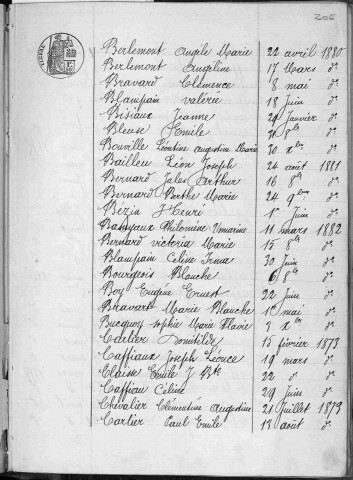 206
Berlemont Angèle Marie 22 avril 1880
Berlemont Angéline 17 Mars do
Bravard Clémence 8 mai do
Blampain Valérie 18 Juin do
Bisiaux Jeanne 29 Janvier do
Bleuse Emile 8bre do
Bouville Léontine Augustine Marie 20 Xbre do
Bailleu Léon Joseph 24 août 1881
Bernard Jules Arthur 16 8bre do
Bernard Berthe Marie 24 9bre do
Bézin Henri 1er Juin do
Philomène 11 mars 1882
Bernard Victoria Marie 15 8bre do
Blampain Celine Irma 30 Juin do
Bourgeois Blanche 6 8bre do
Boy Eugène Ernest 22 Juin do
Bravart Marie Blanche 10 mai do
Bucquoy Sophie Marie Flavie 3 Xbre do
Cartier Domitilde 15 février 1873
Caffiaux Joseph Léonce 19 mars do
Claisse Emile J Bte 22 do do
Caffiau Céline 29 Juin do
Chevalier Clémentine Augustine 21 Juillet 1873
Cartier Paul Emile 13 août do